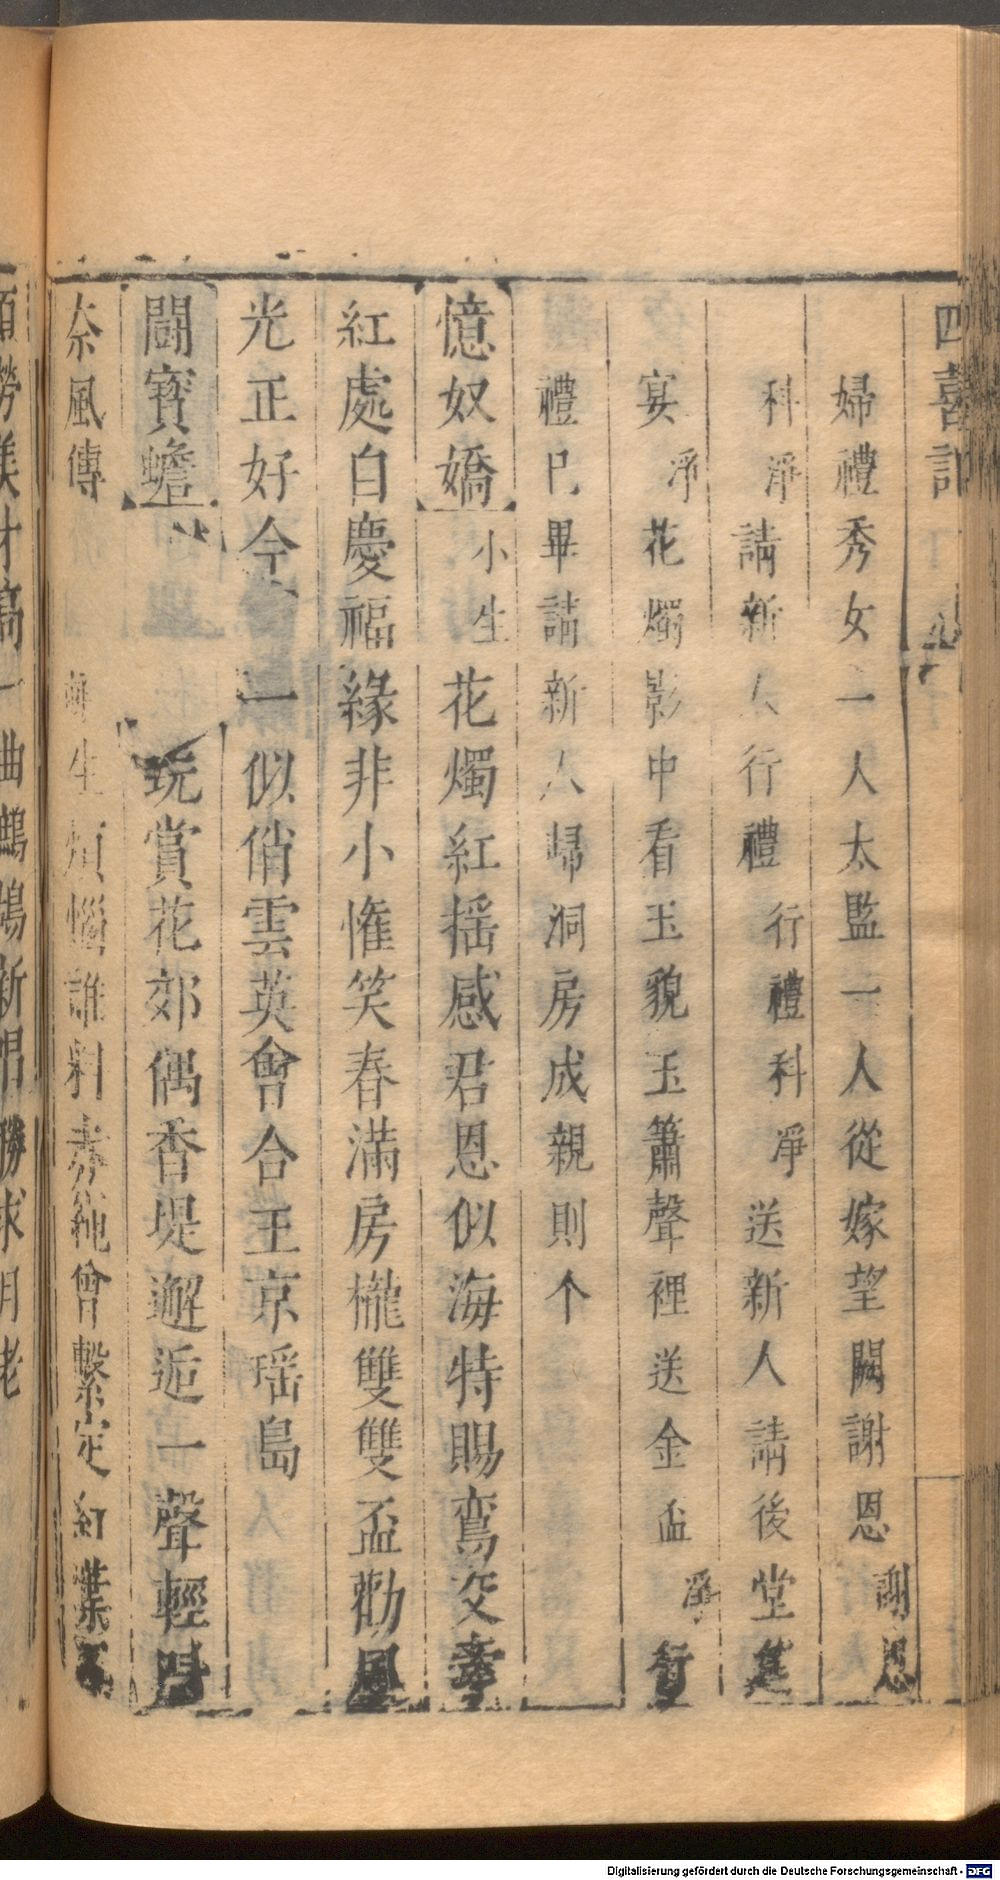 四喜記
婦禮秀女一人太監一人從嫁望闕謝恩謝恩
科淨請新人行禮行禮科淨送新人請後堂筵
宴淨花燭影中看玉貌玉簫聲裡送金盃淨行
禮已畢請新人歸洞房成親則个
憶奴嬌小生花燭紅搖感君恩似海特賜鸞交幸
紅處自慶福緣非小惟笑春滿房櫳雙雙盃勸風
光正好合一似俏雲英會合王京瑶島
鬪寶蟾玩賞花郊偶香堤邂逅一聲輕
奈風傳 生煩惱誰料赤繩曾繫定紅葉
才高一曲鷓鴣新唱勝求月老
Digitalisierung gefördert durch die Deutsche Forschungsgemeinschaft - DFG